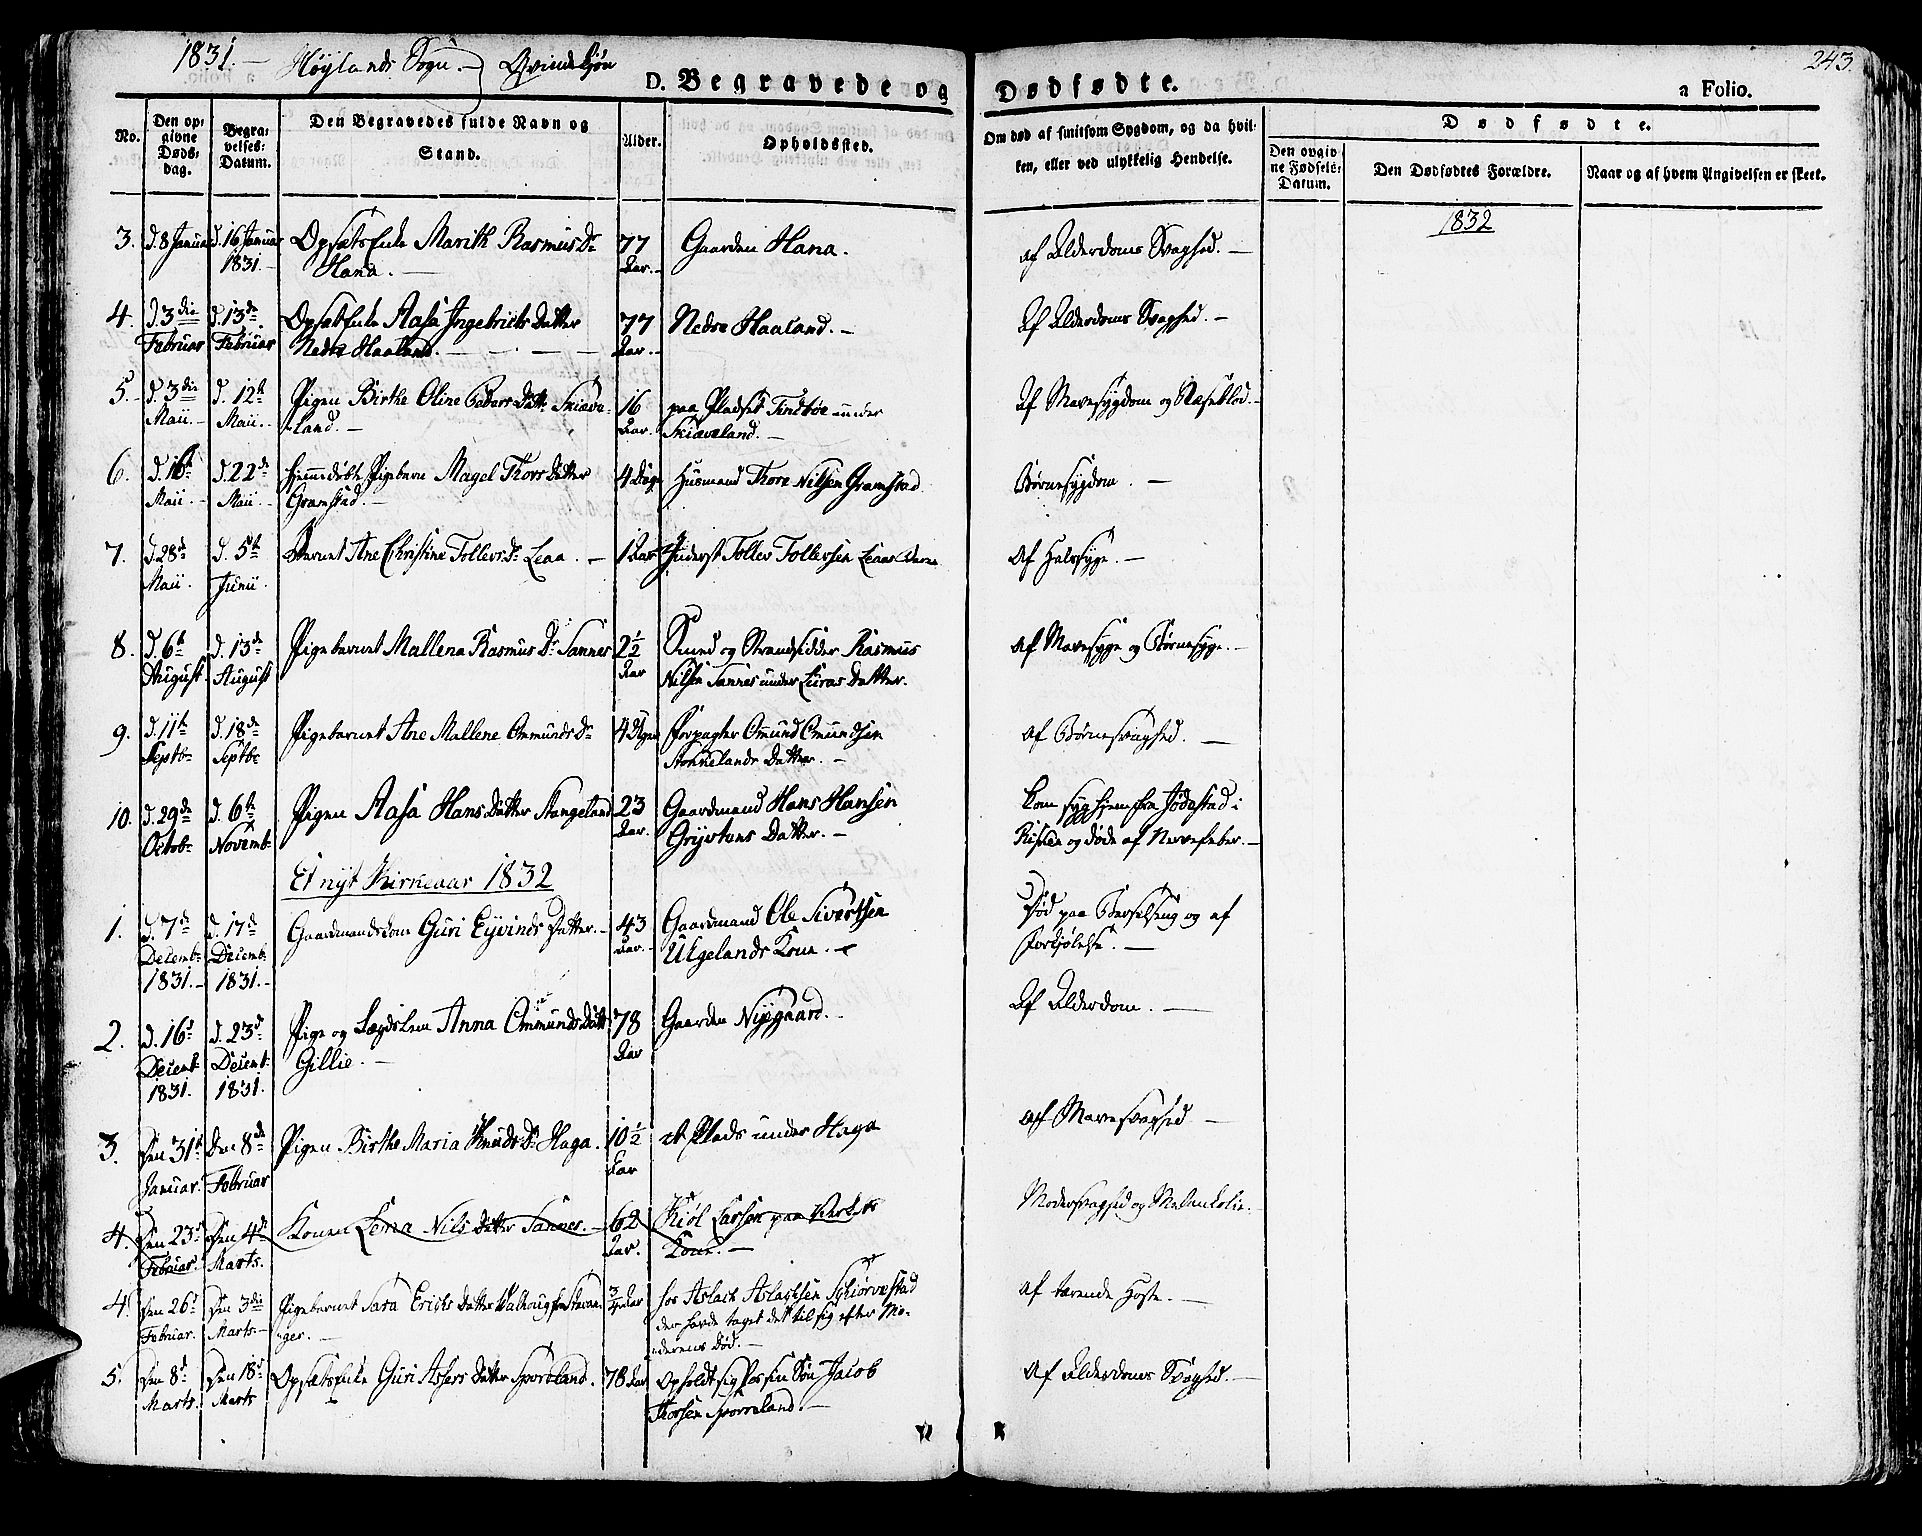 1831. — Høylands Sogn. — Qvindekjøn
243.
D. Begravede og Dødfødte.
a Folio.
No.
Den opgivne Dødsdag.
Begravelses-Datum.
Den Begravedes fulde Navn og Stand.
Alder.
Opholdssted.
Om død af smitsom Sygdom, og da hvilken, eller ved ulykkelig Hendelse.
Dødfødte.
Den opgivne Fødsels-Datum.
Den Dødfødtes Forældre.
Naar og af hvem Angivelsen er skeet.
1832
3. d. 8 Januar d. 16 Januar 1831. Opsætsenke Marith Rasmus Dr Hana. — 77 Aar. Gaarden Hana. af Alderdoms Svaghed. —
4. d. 3die Februar d. 13de Februar Opsætsenke Aasa Ingebrets Datter Nedre Haaland. — 77 Aar. Nedre Haaland. — Af Alderdoms Svaghed. —
5. d. 3die Maii. d. 12te Maii. Pigen Birthe Oline Peders Datt. Skiæveland. — 16 Aar. paa Pladset under Skiæveland. — Af Mavesygdom og Næseblod. —
6. d. 16te Maii. d. 22de Maii. hjemmedøbte Pigebarn Magel Thors Datter Gramstad. — 4 Dage Husmand Thore Nilsen Gramstad Børnesygdom. —
7. d. 28de Maii. d. 5te Junii. Barnet Ane Christine Tollevs Dr Leaa. — 1 Aar Inderst Tollev Tollevsen Af Halssyge. —
8. d. 6te August d. 13de August Pigebarnet Mallena Rasmus Dr Sannes 2½ Aar Smed og Strandsidder Rasmus Nilsen Sannes under Luras Datter. af Mavesyge og Børnesyge. —
9. d. 11te Septbr d. 18de Septbr Pigebarnet Ane Mallene Ommunds Dr 4 Uger Forpagter Omund Omundsen Stokkelands Datter. — af Børnesvaghed. —
10. d. 29de Octobr d. 6te Novembr Pigen Aasa Hans Datter Stangeland 23 Aar. Gaardmand Hans Hansen Datter. — kom syg hjem fra i og døde af Nervefeber. —
Et nyt Kirkeaar 1832
1. d. 7de Decembr 1831. d. 17de Decemb. 1831. Gaardmandskone Guri Eyvinds Datter. — 43 Aar. Gaardmand Ole Sivertsen Kone. — Død paa Barselseng og af Forkjølelse. —
2. d. 16de Decemb. 1831. d. 23de Decemb. 1831. Pige og Lægdslem Anna Ommunds Datt. Gillie. — 78 Aar Gaarden Nygaard. Af Alderdom. —
3. Den 31te Januar. Den 8de Februar Pigen Birthe Maria Knuds Dr Haga. 10½ Aar et Plads under Haga af Mavesvaghed —
4. Den 23de Februar. Den 4de Marts. Konen Lena Nils Datter Sannes. — 62 Aar. Kiøl Larsen paa Kone. — Modersvaghed og Melankolie.
4. Den 26de Februar. Den 3die Marts. Pigebarnet Sara Erichs Datter fra Stavanger. — ¾ Aar hos Aslach Aslachsen Schiørvestad der havde taget det til sig efter Moderens Død. — af tærende Hoste. —
5. Den 8de Marts. Den 18de Marts Opsætsenke Guri Assers Datter Sporeland. 78 Aar opholdt sig hos sin Søn Jacob Thorsen Sporreland. — af Alderdoms Svaghed. —